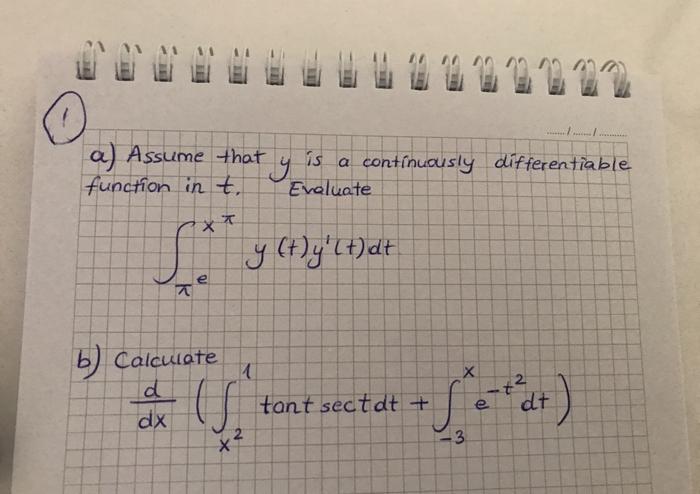 1
....../....../............
a) Assume that y is a continuously differentiable
function in t. Evaluate
∫_{π^e}^{x^π} y(t)y'(t)dt
b) Calculate
d/dx (∫_{x^2}^{1} tant sect dt + ∫_{-3}^{x} e^{-t^2} dt)